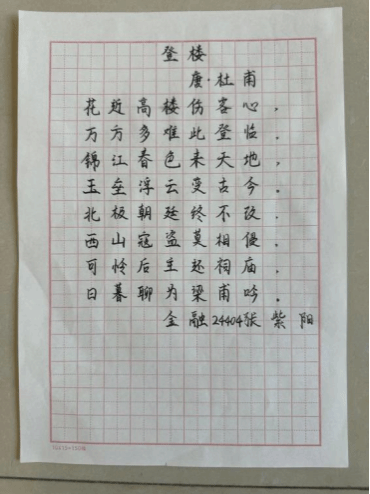 登楼
唐·杜甫
花近高楼伤客心，
万方多难此登临。
锦江春色来天地，
玉垒浮云变古今。
北极朝廷终不改，
西山寇盗莫相侵。
可怜后主还祠庙，
日暮聊为梁甫吟。
金融24404张紫阳